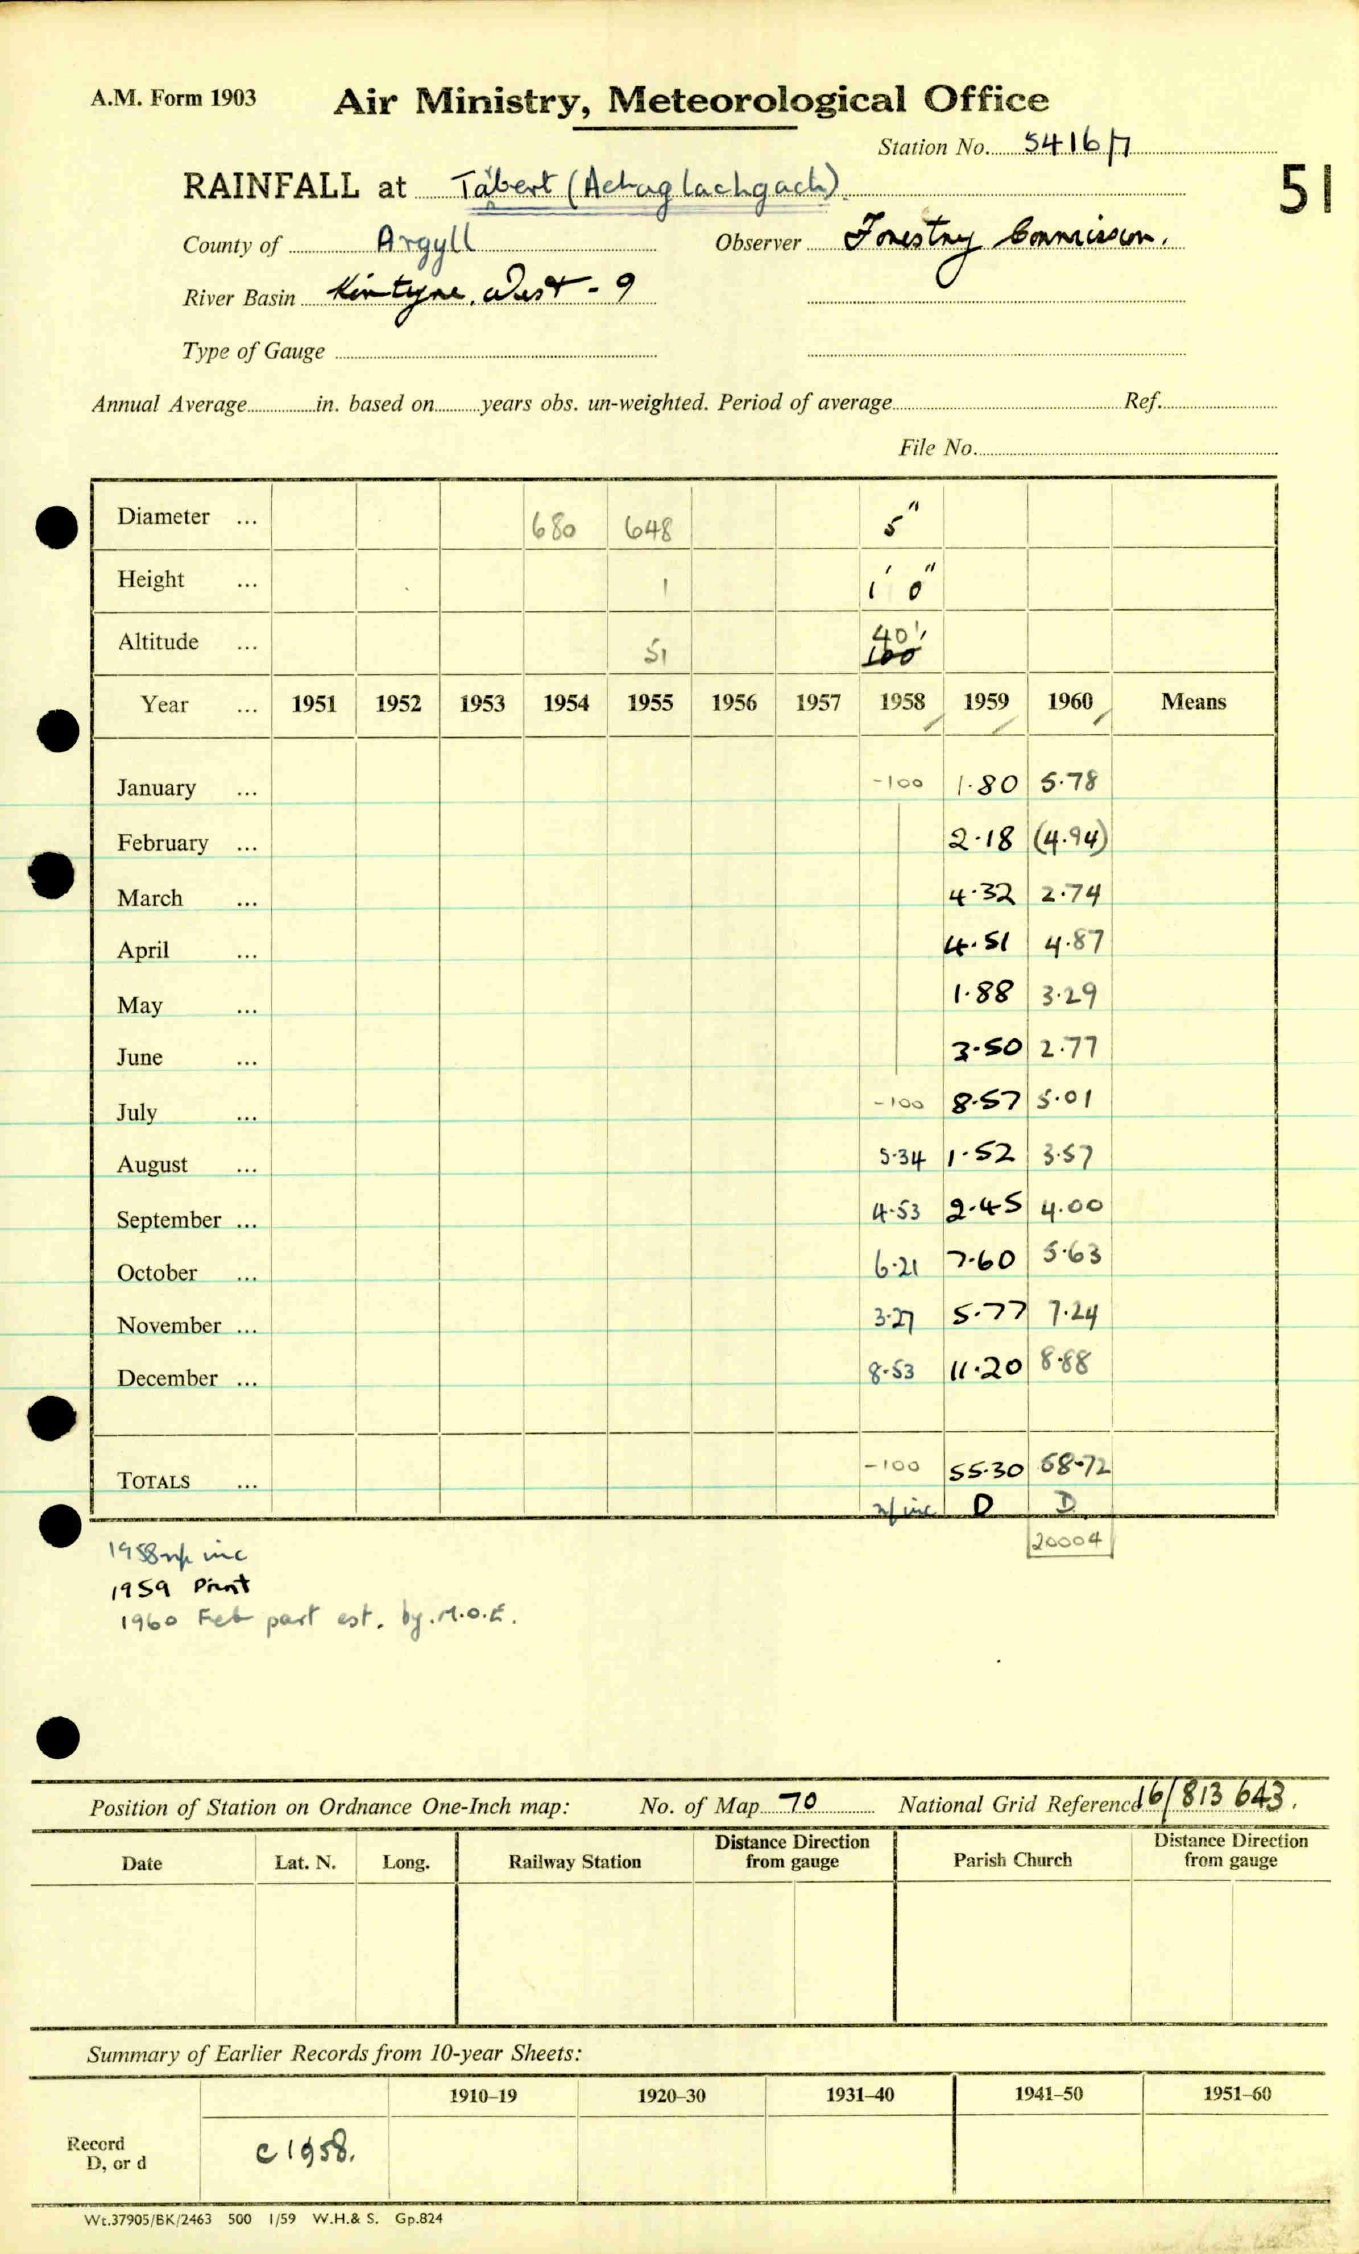 A.M. Form 1903
Air Ministry, Meteorological Office
Station No. 5416/7
RAINFALL at Tabert (Achaglachgach)
51
County of Argyll Observer Forestry Commission.
River Basin Kintyre, West - 9
Type of Gauge
Annual Average in. based on years obs. un-weighted. Period of average Ref.
File No.
Diameter ... 680 648 5"
Height ... 1 1' 0"
Altitude ... 51 40' 100
Year ... 1951 1952 1953 1954 1955 1956 1957 1958 1959 1960 Means
January ... -100 1.80 5.78
February ... 2.18 (4.94)
March ... 4.32 2.74
April ... 4.51 4.87
May ... 1.88 3.29
June ... 3.50 2.77
July ... -100 8.57 5.01
August ... 5.34 1.52 3.57
September ... 4.53 2.45 4.00
October ... 6.21 7.60 5.63
November ... 3.27 5.77 7.24
December ... 8.53 11.20 8.88
TOTALS ... -100 55.30 58.72
n/inc D D
20004
1958 np inc
1959 Print
1960 Feb part est. by. M.O.E.
Position of Station on Ordnance One-Inch map: No. of Map 70 National Grid Reference 16/813 643.
Date Lat. N. Long. Railway Station Distance Direction from gauge Parish Church Distance Direction from gauge
Summary of Earlier Records from 10-year Sheets:
1910–19 1920–30 1931–40 1941–50 1951–60
Record D, or d c 1958.
Wt.37905/BK/2463 500 1/59 W.H.& S. Gp.824